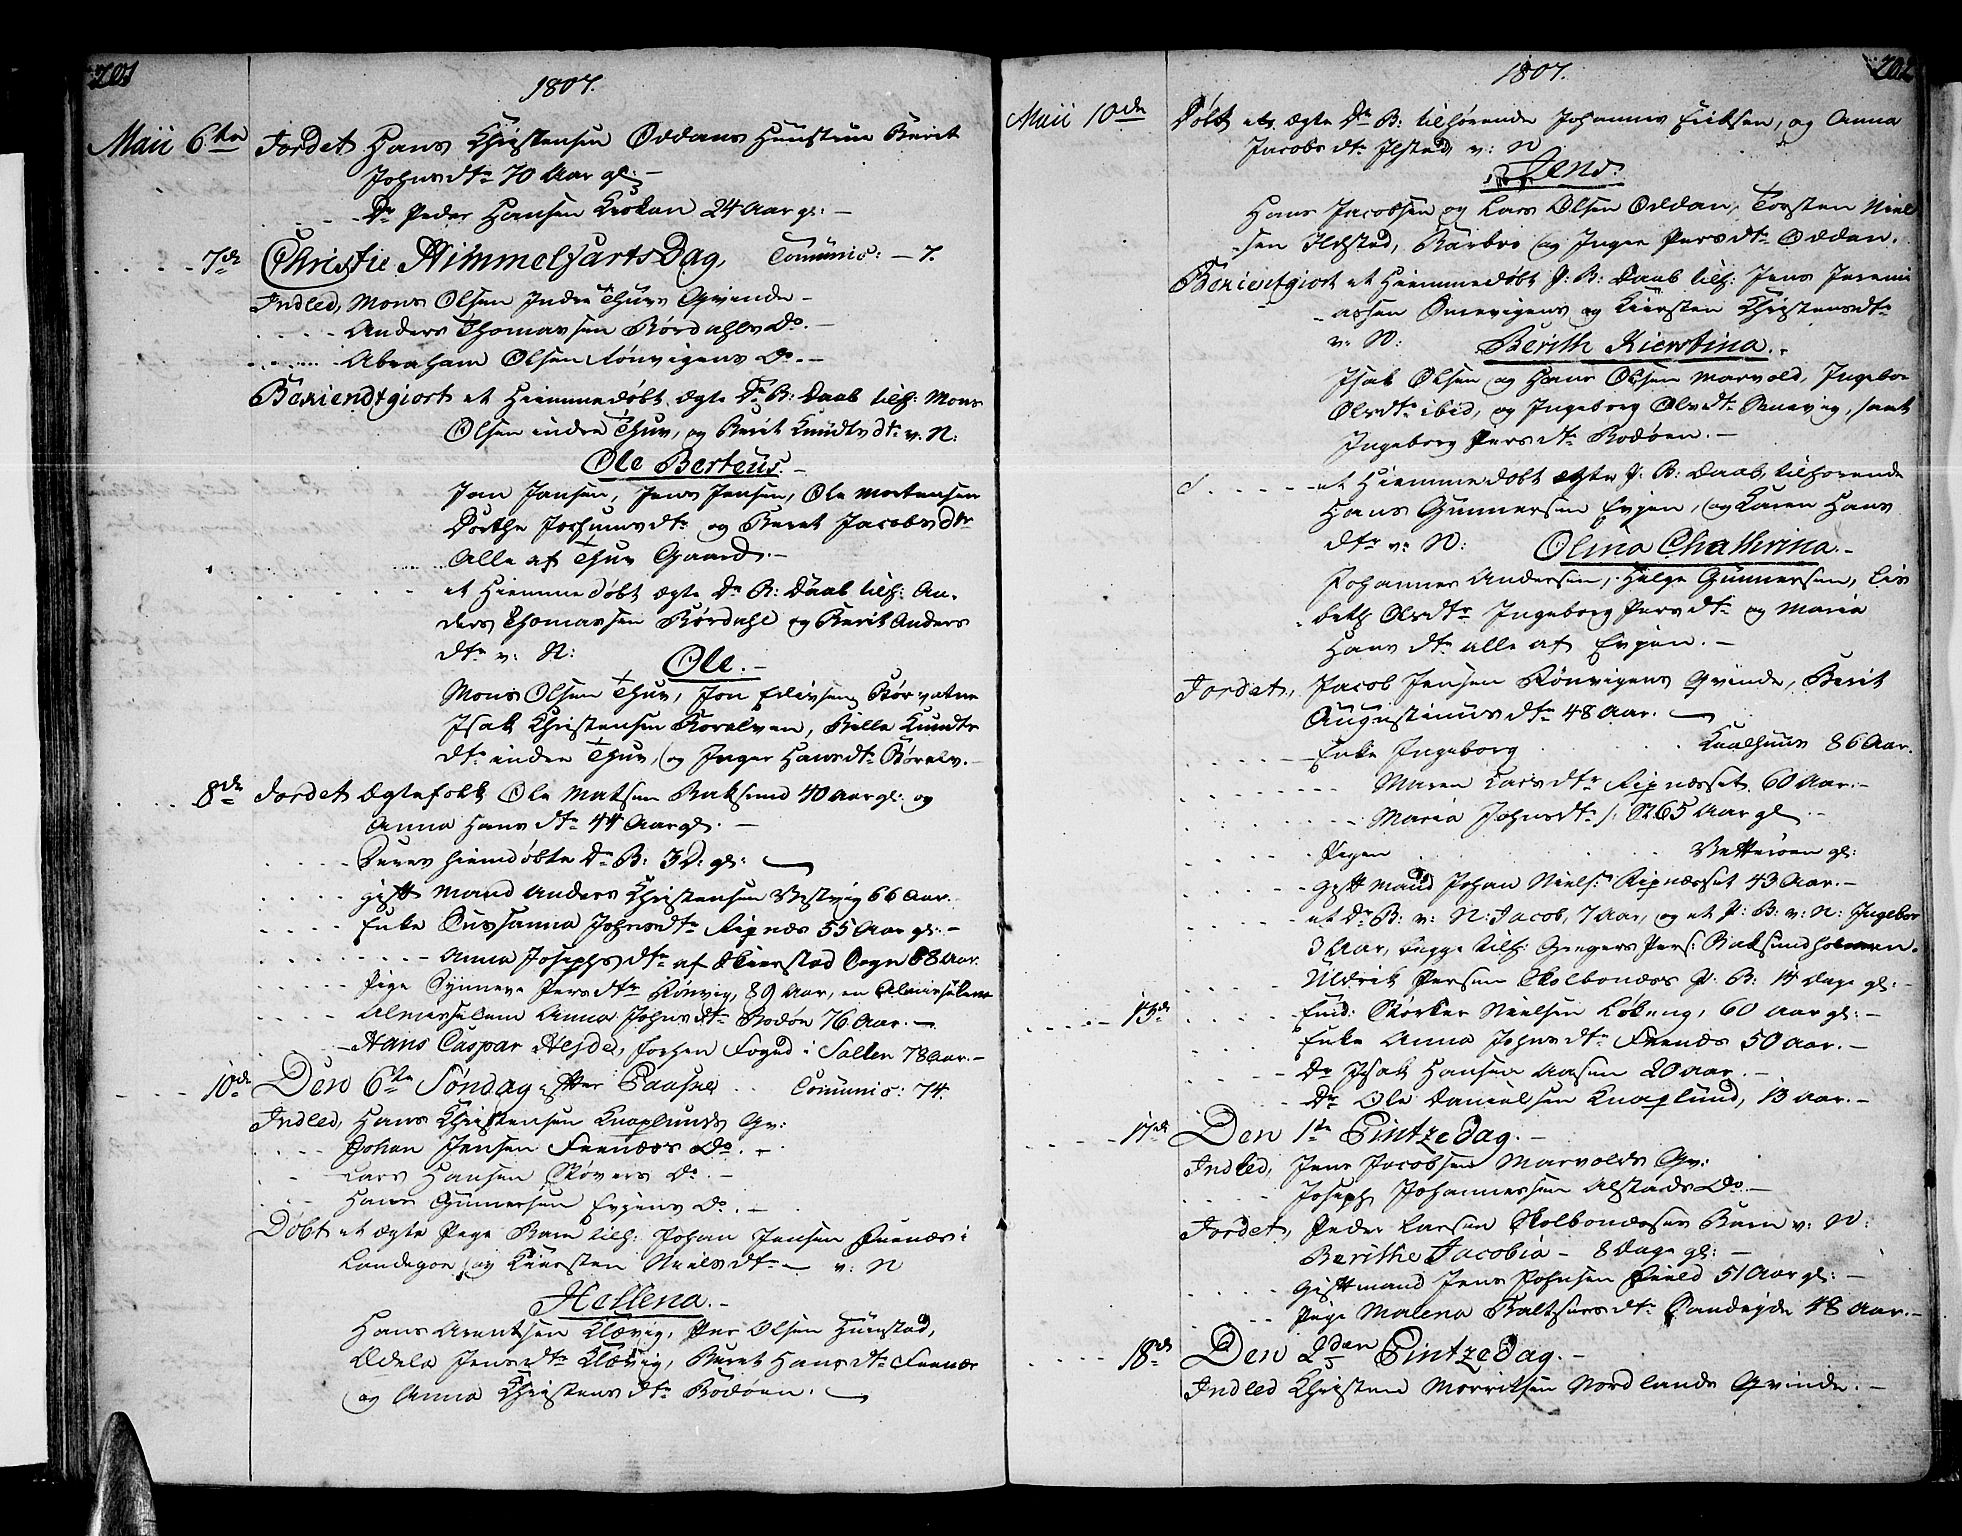 201
1807.
Maii 6te Jordet Hans Christensen Oddans Huustrue Berit
Johnsdtr 70 Aar gl: –
Dr Peder Hansen Krokan 24 Aar gl: –
7de Christie Himmelfarts Dag, Comunic: – 7.
Indled, Mons Olsen Indre Thuvs Qvinde –
Anders Thomassen Børdahls Do. –
Abraham Olsen Rønvigens Do. –
Bekiendtgiort et Hiemmedøbt ægte Dr. B: Daab tilh: Mons
Olsen indre Thuv, og Berit Knudtsdtr v: N:
Ole Berteus. –
Jon Jansen, Jens Jensen, Ole Mortensen
Dorthe Jochumsdtr og Beret Jacobsdtr
Alle af Thuv Gaard. –
et Hiemmedøbt ægte Dr B: Daab tilh: An-
ders Thomassen Børdahl og Berit Anders
dtr v: N:
Ole. –
Mons Olsen Thuv, Jon Eliesen Børvatne
Isak Christensen Børelven, Bille Knudts
dtr indre Thuv, og Inger Hansdtr Børelv. –
8de Jordet Ægtefolk Ole Matsen Baksund 40 Aar gl: og
Anna Hansdtr 44 Aar gl. –
Deres hiemdøbte Dr B: 3 D: gl: –
gift Mand Anders Christensen Vestvig 66 Aar.
Enke Sussanna Johnsdtr Ripnæs 55 Aar gl: –
Anna Josephsdtr af Skierstad Sogn 68 Aar.
Pige Synneve Persdtr Rønvig, 89 Aar, en Almisselem
Almisselem Anna Johnsdtr Bodøn 76 Aar. –
Hans Caspar Hejde, forhen Foged i Salten 78 Aar. –
10de Den 6te Søndag efter Paaske Comunic: 74.
Indled, Hans Christensen Knaplunds Qv:
Johan Jensen Fennæs Do. –
Lars Hansen Støvers Do. –
Hans Gunnersen Evjens Do. –
Døbt et ægte Pige Barn tilh: Johan Jensen Fenæs i
Landegoe og Kiersten Nielsdtr – v: N
Hellena. –
Hans Arentsen Kløvig, Per Olsen Hunstad,
Adela Jensdtr Kløvig, Beret Hansdtr Fenæs
og Anna Christensdtr Bodøen. –
202
1807.
Maii 10de Døbt et ægte Dr B: tilhørende Johannes Eriksen, og Anna
Jacobsdtr Ilstad v: N
Jens.
Hans Jacobsen og Lars Olsen Oddan, Torsten Niel
-sen Ildstad, Barbro og Inger Persdtr Oddan.
Bekientgiort et Hiemmedøbt P: B: Daab tilh: Jens Jeremi
-assen Smevigens og Kiersten Christensdtr
v: N:
Berith Kierstina. –
Isak Olsen og Hans Olsen Marvold, Ingebor
Olsdtr ibid, og Ingeborg Olsdtr Smevig, samt
Ingeborg Persdtr Bodøen. –
et Hiemmedøbt ægte P: B: Daab, tilhørende
Hans Gunnersen Evjen, og Karen Hans
dtr v: N: Olina Chathrina. –
Johannes Andersen, Helge Gunnersen, Lis
beth Olsdtr Ingeborg Persdtr og Maria
Hansdtr alle af Evjen. –
Jordet, Jacob Jensen Rønvigens Qvinde, Berit
Augustinusdtr 48 Aar. –
Enke Ingeborg Kaalhuus 86 Aar.
Maren Larsdtr Ripnæsset 60 Aar. –
Maria Johnsdtr S: N 65 Aar gl. –
Pigen Vetterøen gl:
gift Mand Johan Niels: Ripnæsset 43 Aar. –
et Dr B: v: N: Jacob, 7 Aar, og et P: B: v: N: Ingebor
3 Aar, begge tilh: Gregers Pers: Baksundholmen.
Uldrik Persen Skolbonæs P: B: 14 Dage gl: –
13de Enk: Størker Nielsen Løkeng, 60 Aar gl: –
Enke Anna Johnsdtr Fenæs 50 Aar. –
Dr Isak Hansen Aasen 20 Aar. –
Dr Ole Danielsen Knaplund, 13 Aar. –
17de Den 1te Pintzedag. –
Indled, Jens Jacobsen Marvolds Qv:
Joseph Johannessen Alstads Do. –
Jordet, Peder Larsen Skolbonæsses Barn v: N:
Berithe Jacobia – 8 Dage gl: –
gift Mand Jens Johnsen Field 51 Aar gl: –
Pige Malena Baltzersdtr Sandejde 48 Aar. –
18de Den 2den Pintzedag. –
Indled Christen Morritsen Nordlands Qvinde. –